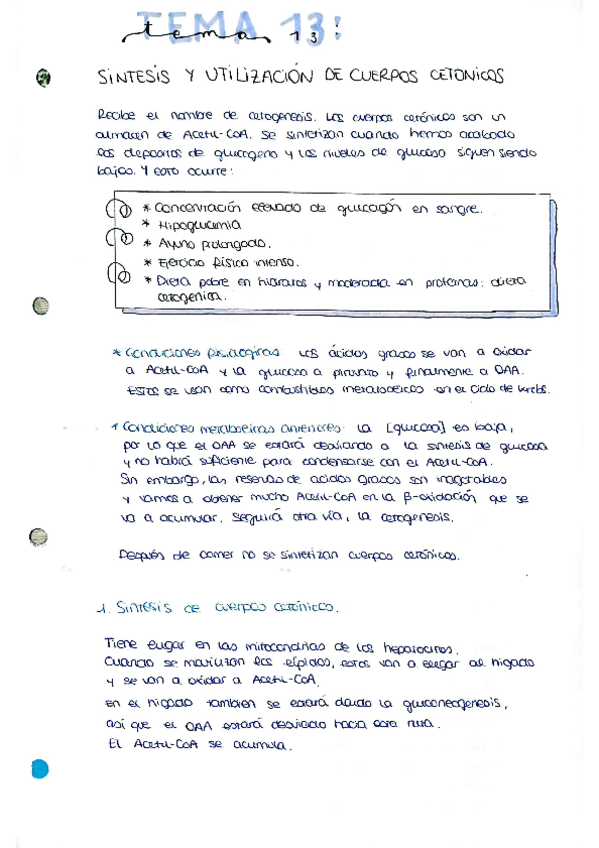 TEMA 13:
tema 13
SINTESIS Y UTILIZACIÓN DE CUERPOS CETONICOS
Recibe el nombre de cetogenesis. Los cuerpos cetónicos son un
almacen de Acetil-CoA. Se sintetizan cuando hemos acabado
los depositos de glucogeno y los niveles de glucosa siguen siendo
bajos. Y esto ocurre:
* Concentración elevada de glucagón en sangre.
* Hipoglucemia
* Ayuno prolongado.
* Ejercicio físico intenso.
* Dieta pobre en hidratos y moderada en proteinas: dieta
cetogenica.
* Condiciones fisiologicas: Los ácidos grasos se van a oxidar
a Acetil-CoA y la glucosa a piruvato y finalmente a OAA.
Estos se usan como combustibles metabolicos en el ciclo de Krebs.
* Condiciones metabolicas anteriores: la [glucosa] es baja,
por lo que el OAA se estará desviando a la sintesis de glucosa
y no habrá suficiente para condensarse con el Acetil-CoA.
Sin embargo, las reservas de acidos grasos son inagotables
y vamos a obtener mucho Acetil-CoA en la β-oxidación que se
va a acumular. Seguirá otra vía, la cetogenesis.
Después de comer no se sintetizan cuerpos cetónicos.
1. Sintesis de cuerpos cetónicos.
Tiene lugar en las mitocondrias de los hepatocitos.
Cuando se movilizan los lípidos, estos van a llegar al higado
y se van a oxidar a Acetil-CoA.
en el higado tambien se estará dando la gluconeogenesis,
así que el OAA estará desviado hacia esta ruta.
El Acetil-CoA se acumula.